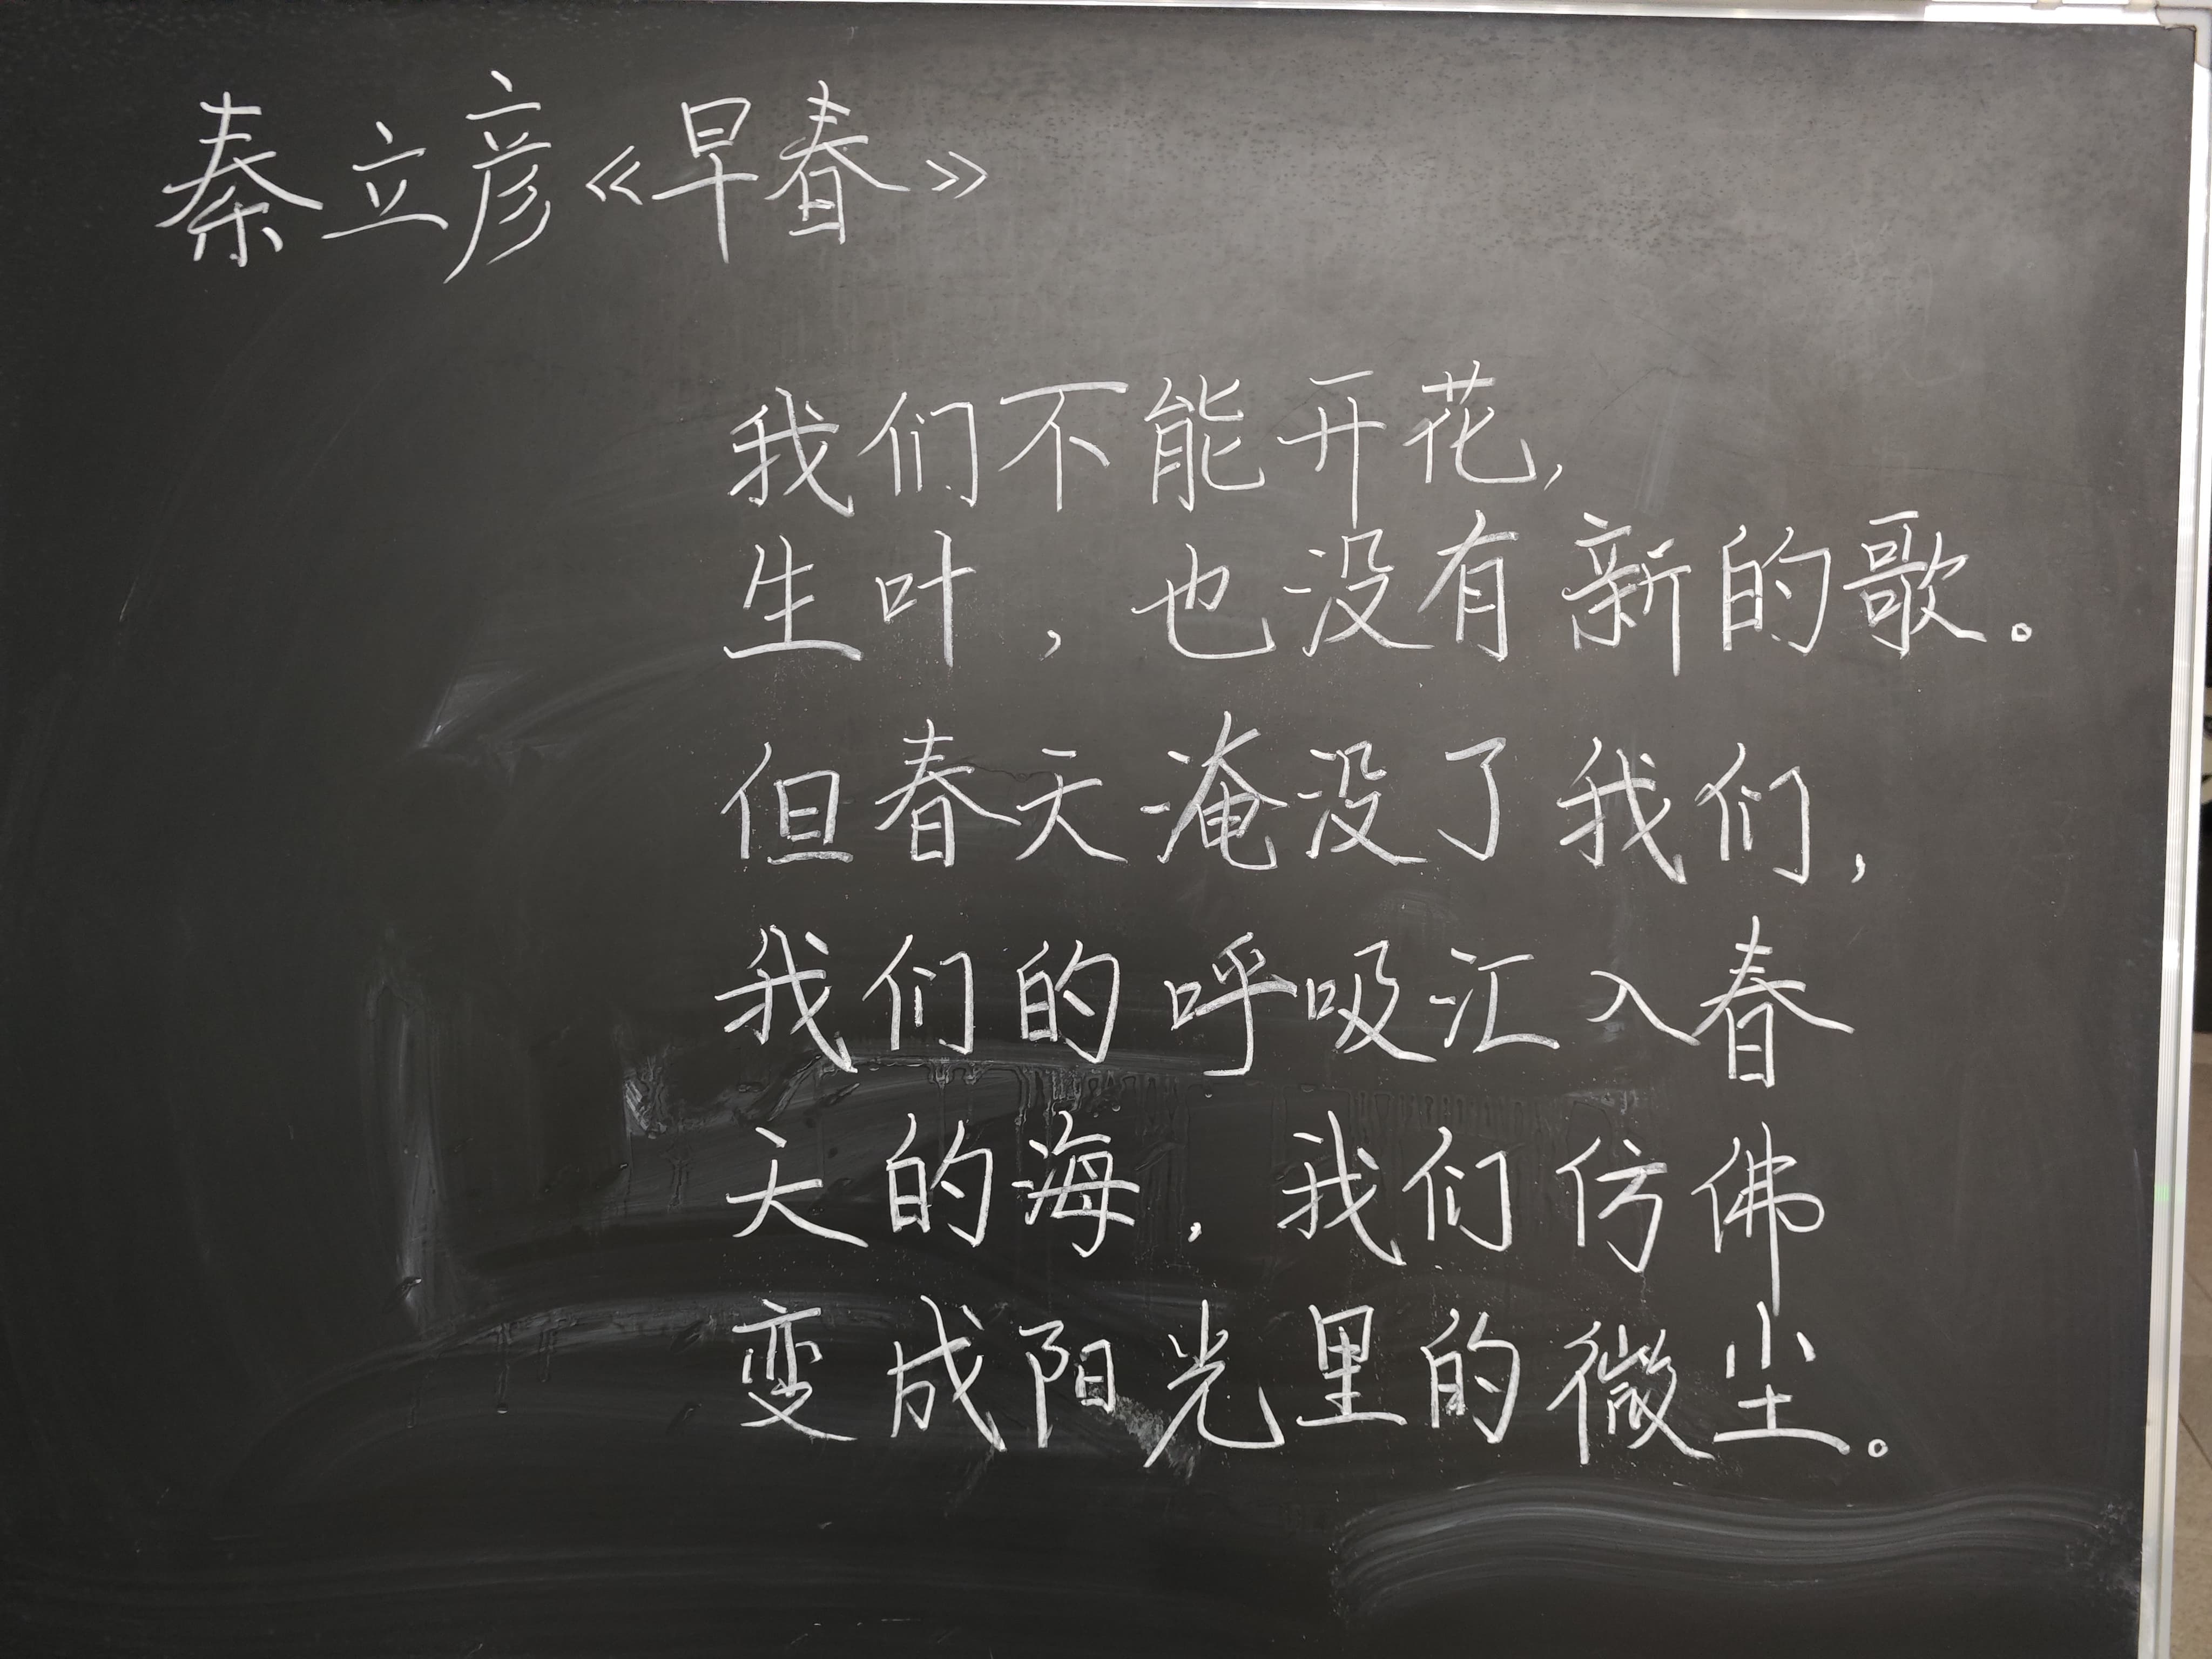 秦立彦《早春》
我们不能开花,
生叶，也没有新的歌。
但春天淹没了我们,
我们的呼吸汇入春
天的海，我们仿佛
变成阳光里的微尘。